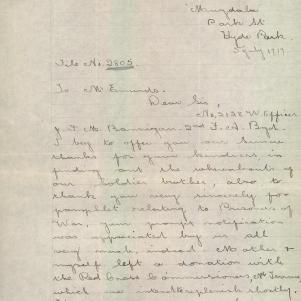 Park St
Hyde Park
July 1917
File No. 2805.
To Mr Edmonds.
Dear Sir,
No. 2128 W. Officer
J. T. M. Bannigan - 2nd F. A. Byd.
I beg to offer you our sincere
thanks for your kindness, in
finding out the whereabouts of
our soldier brother, also to
thank you very sincerely for
pamphlet relating to Prisoners of
War, your prompt notification
was appreciated by us all
very much, indeed Mother &
myself left a donation with
the Red Cross Commissioner,
which we intend replenish shortly.